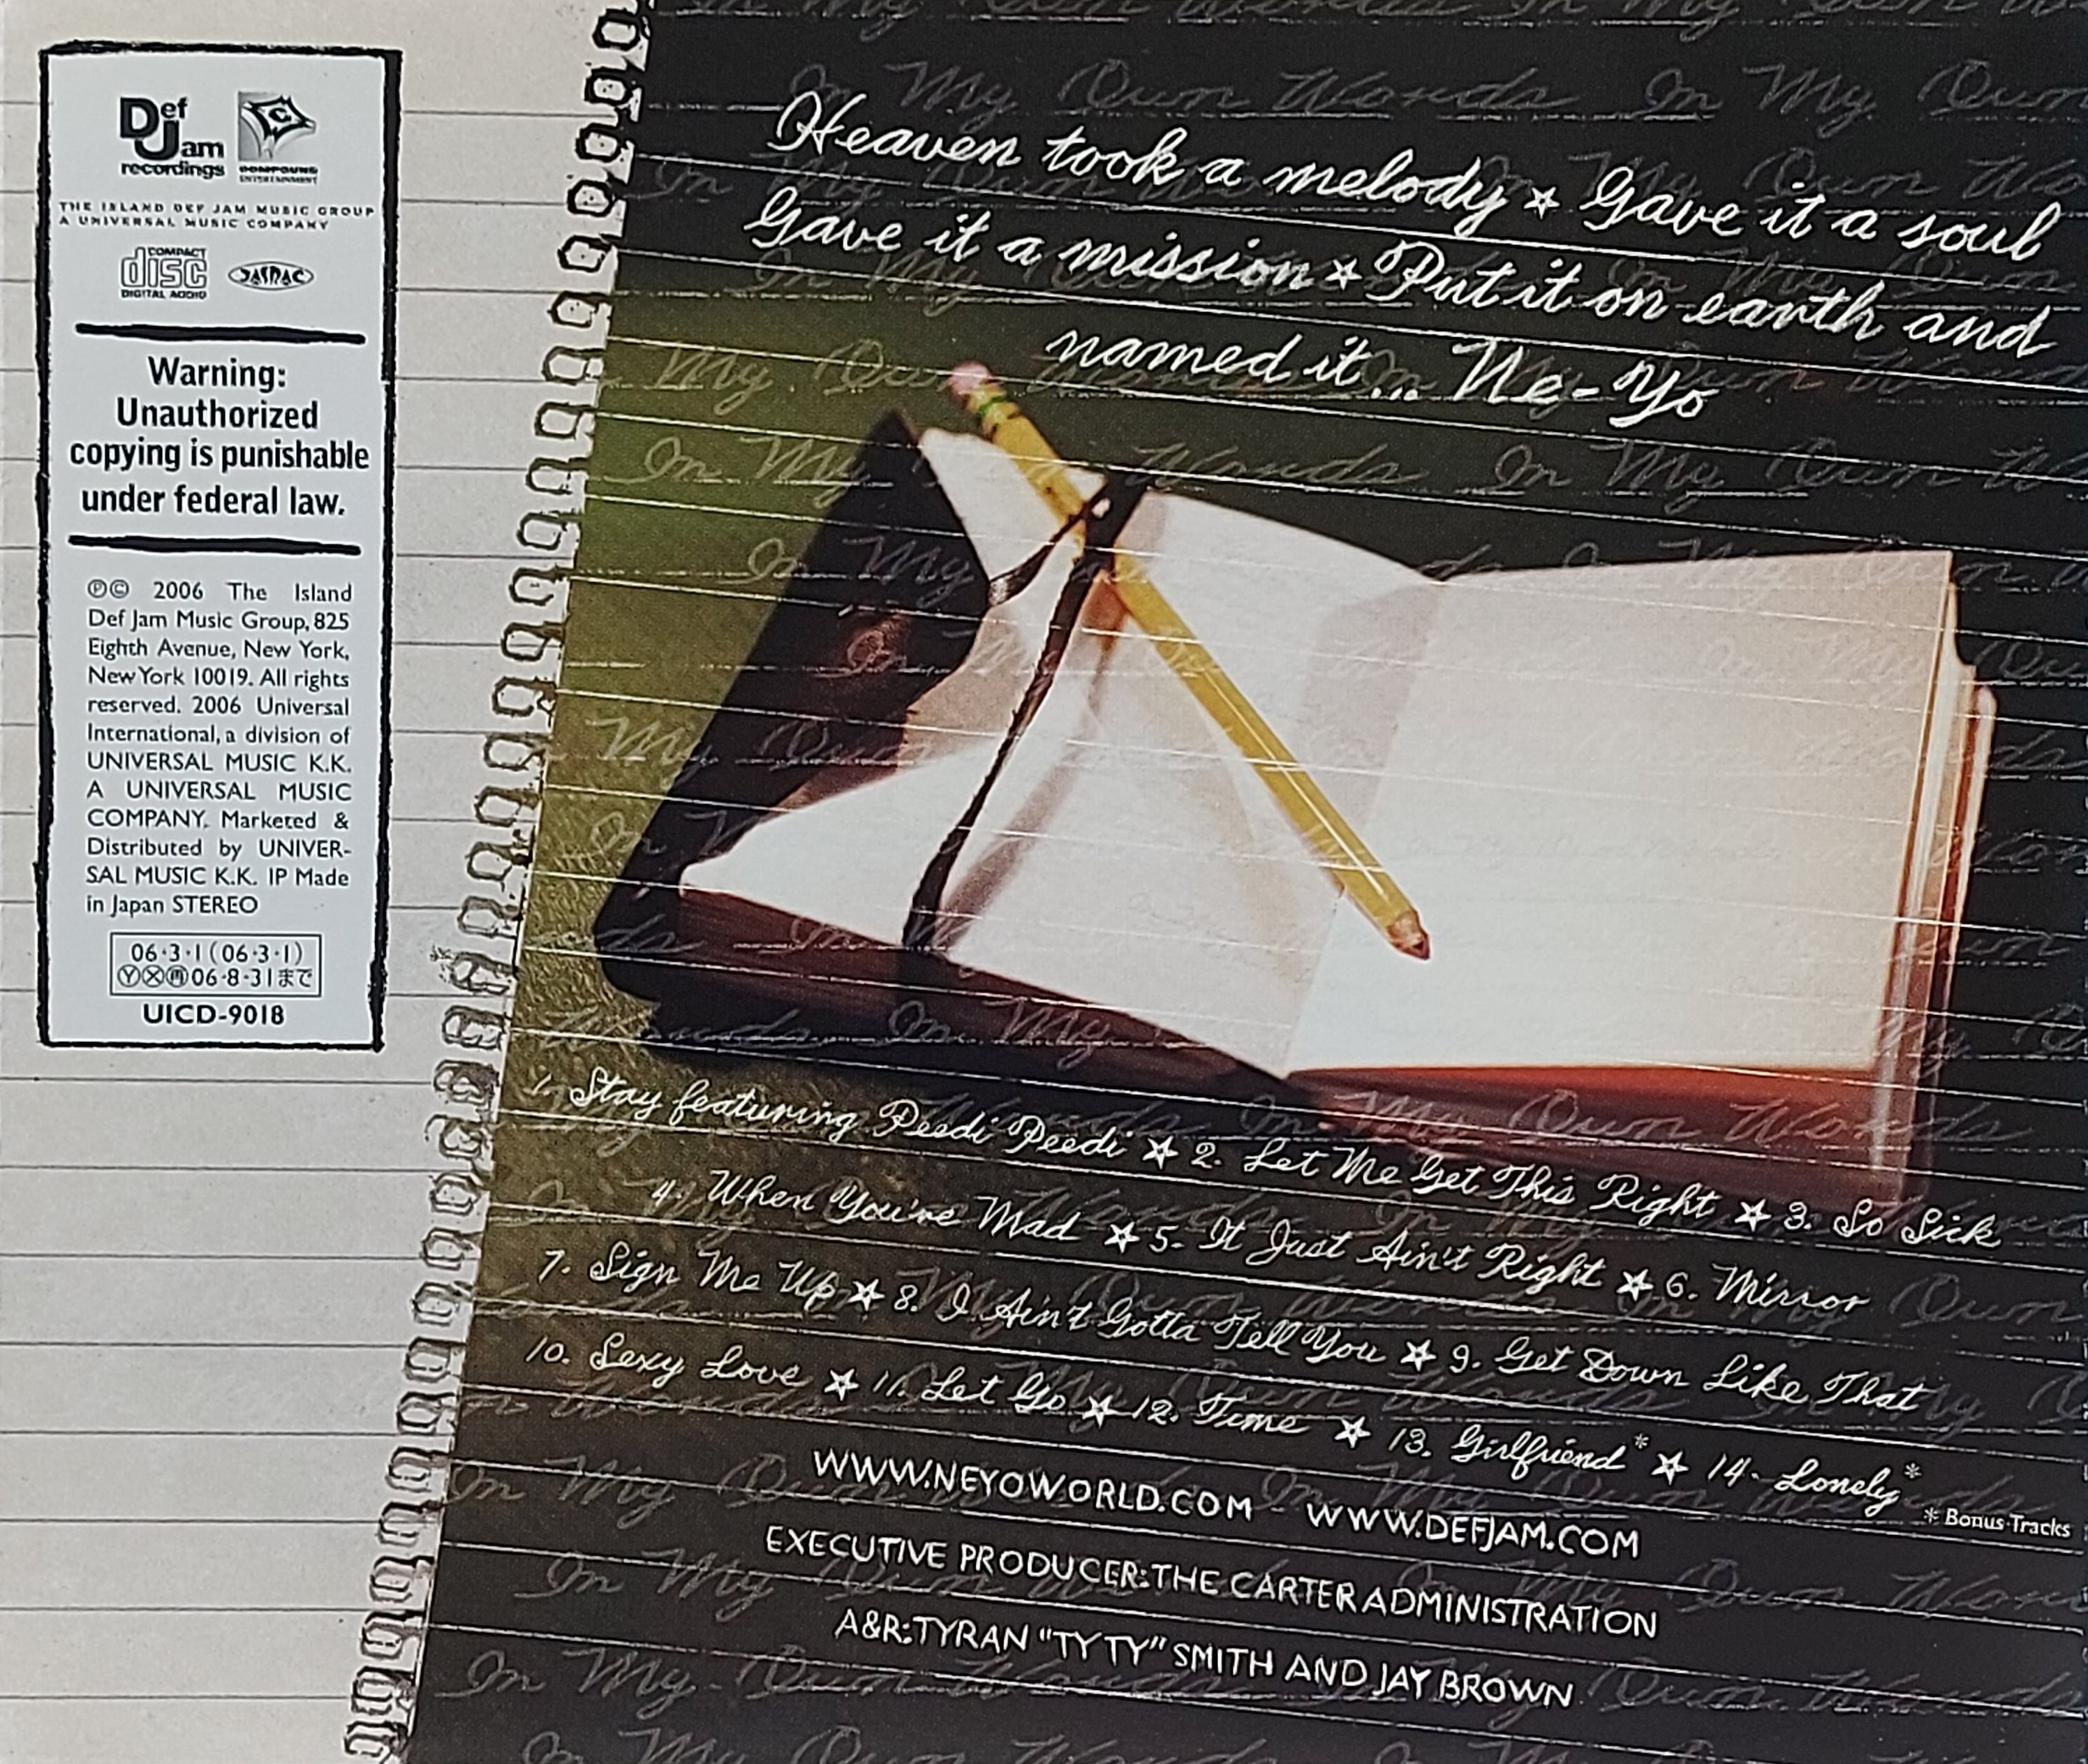 Def Jam
recordings
COMPOUND
ENTERTAINMENT
THE ISLAND DEF JAM MUSIC GROUP
A UNIVERSAL MUSIC COMPANY
COMPACT
disc
DIGITAL AUDIO
JASRAC
Warning:
Unauthorized
copying is punishable
under federal law.
℗© 2006 The Island
Def Jam Music Group, 825
Eighth Avenue, New York,
New York 10019. All rights
reserved. 2006 Universal
International, a division of
UNIVERSAL MUSIC K.K.
A UNIVERSAL MUSIC
COMPANY. Marketed &
Distributed by UNIVER-
SAL MUSIC K.K. IP Made
in Japan STEREO
06・3・1(06・3・1)
Ⓨ Ⓧ 再 06・8・31まで
UICD-9018
Heaven took a melody ☆ Gave it a soul
Gave it a mission ☆ Put it on earth and
named it... Ne-Yo
1. Stay featuring Peedi Peedi ☆ 2. Let Me Get This Right ☆ 3. So Sick
4. When You're Mad ☆ 5. It Just Ain't Right ☆ 6. Mirror
7. Sign Me Up ☆ 8. I Ain't Gotta Tell You ☆ 9. Get Down Like That
10. Sexy Love ☆ 11. Let Go ☆ 12. Time ☆ 13. Girlfriend* ☆ 14. Lonely*
* Bonus Tracks
WWW.NEYOWORLD.COM - WWW.DEFJAM.COM
EXECUTIVE PRODUCER: THE CARTER ADMINISTRATION
A&R: TYRAN "TY TY" SMITH AND JAY BROWN
In My Own Words